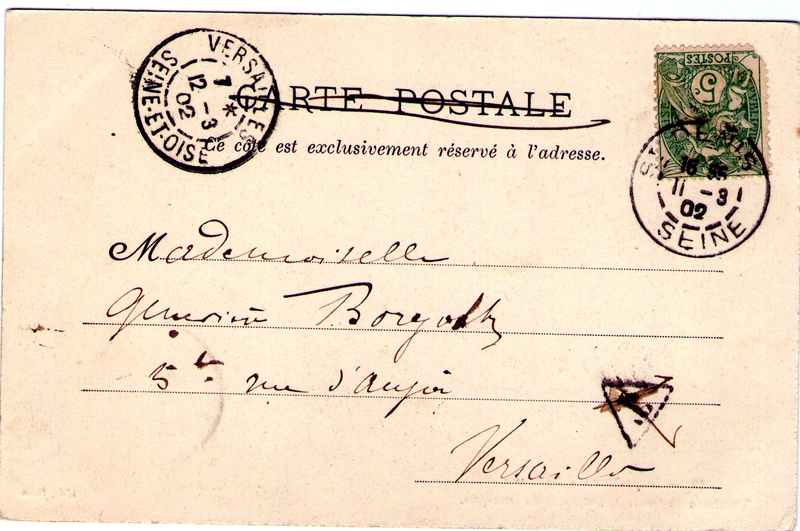 VERSAILLES
7
12 - 3
02
SEINE-ET-OISE
CARTE POSTALE
Ce côté est exclusivement réservé à l'adresse.
POSTES
5
11 - 3
02
SEINE
Mademoiselle
5 rue d'Anjou
Versailles